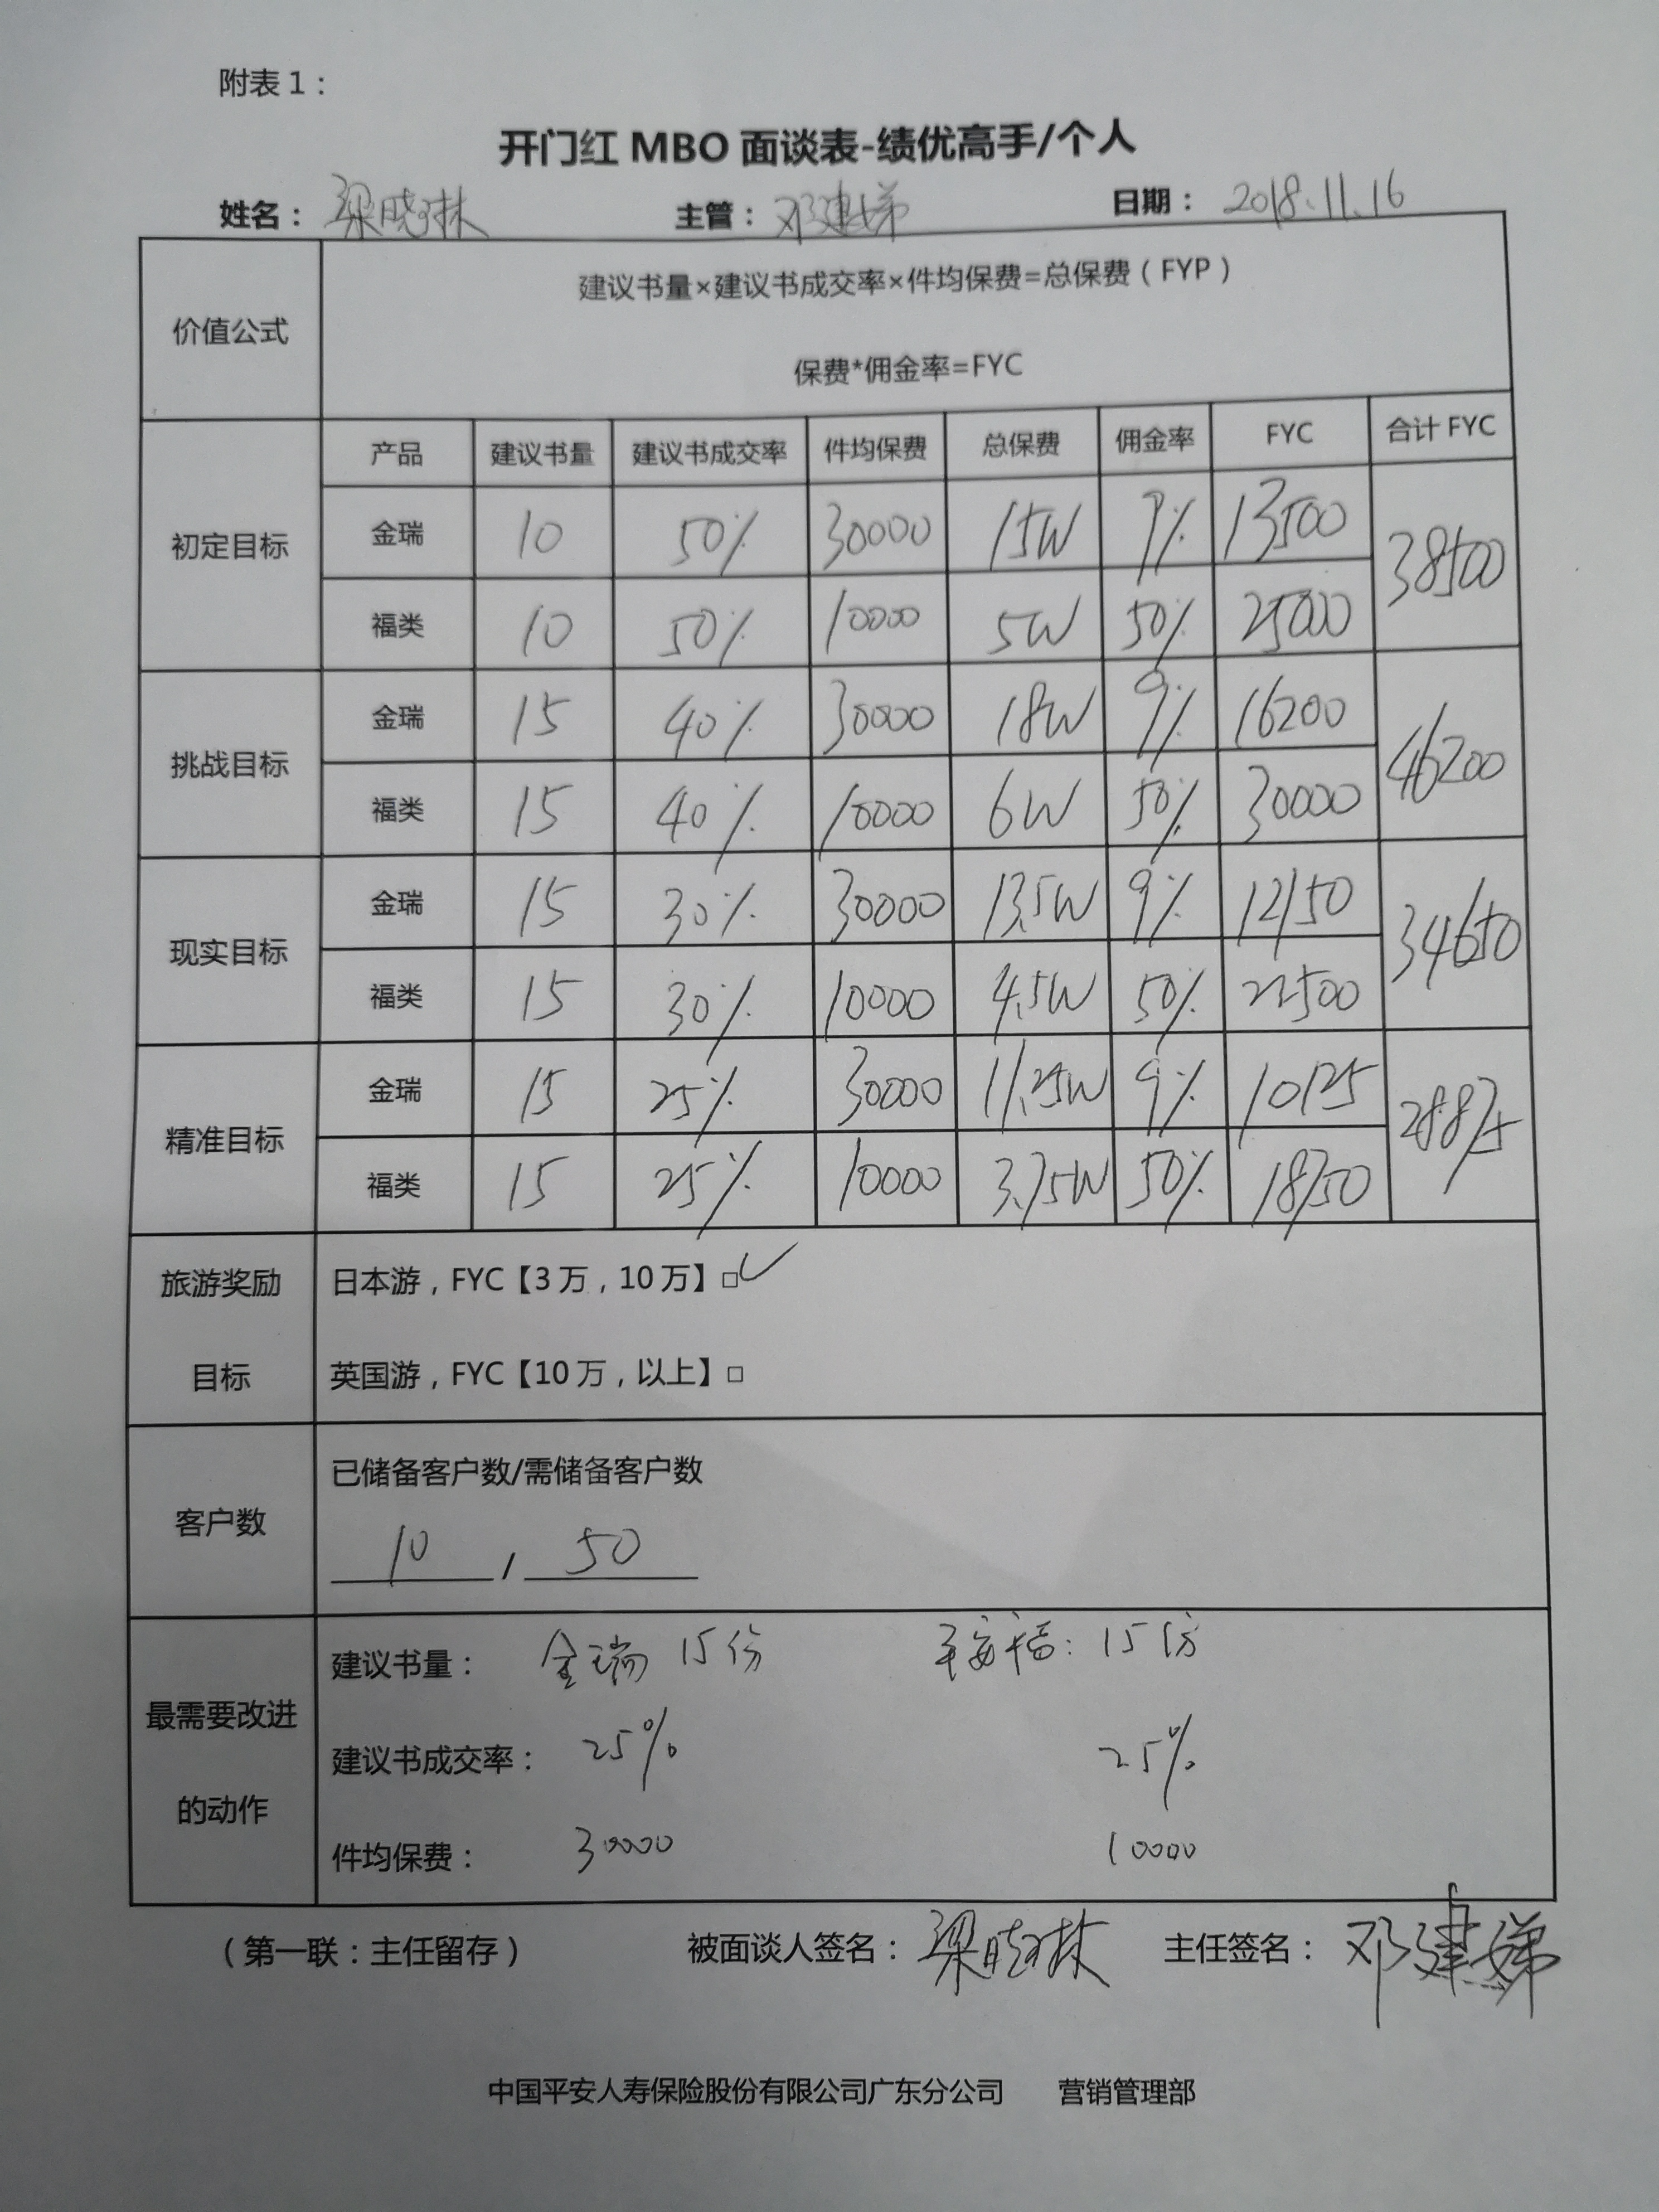 附表1：
开门红 MBO 面谈表-绩优高手/个人
姓名： 梁晓琳 主管： 邓建娣 日期： 2018.11.16
价值公式
建议书量×建议书成交率×件均保费=总保费（FYP）
保费*佣金率=FYC
产品 建议书量 建议书成交率 件均保费 总保费 佣金率 FYC 合计 FYC
初定目标
金瑞 10 50% 30000 15W 9% 13500 38500
福类 10 50% 10000 5W 50% 25000
挑战目标
金瑞 15 40% 30000 18W 9% 16200 46200
福类 15 40% 10000 6W 50% 30000
现实目标
金瑞 15 30% 30000 13.5W 9% 12150 34650
福类 15 30% 10000 4.5W 50% 22500
精准目标
金瑞 15 25% 30000 11.25W 9% 10125 28875
福类 15 25% 10000 3.75W 50% 18750
旅游奖励
目标
日本游，FYC【3万，10万】□✓
英国游，FYC【10万，以上】□
客户数
已储备客户数/需储备客户数
10 / 50
最需要改进
的动作
建议书量： 金瑞 15份 平安福：15份
建议书成交率： 25% 25%
件均保费： 30000 10000
（第一联：主任留存） 被面谈人签名： 梁晓琳 主任签名： 邓建娣
中国平安人寿保险股份有限公司广东分公司 营销管理部